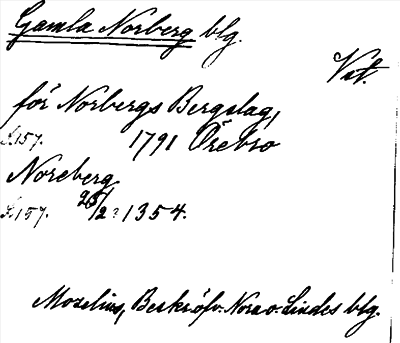 Gamla Norberg blg.
Vst.
för Norbergs Bergslag,
S.157. 1791 Örebro
Noreberg
S.157. 25/2 1354.
Mozelius, Beskr. öfv. Nora o. Lindes blg.